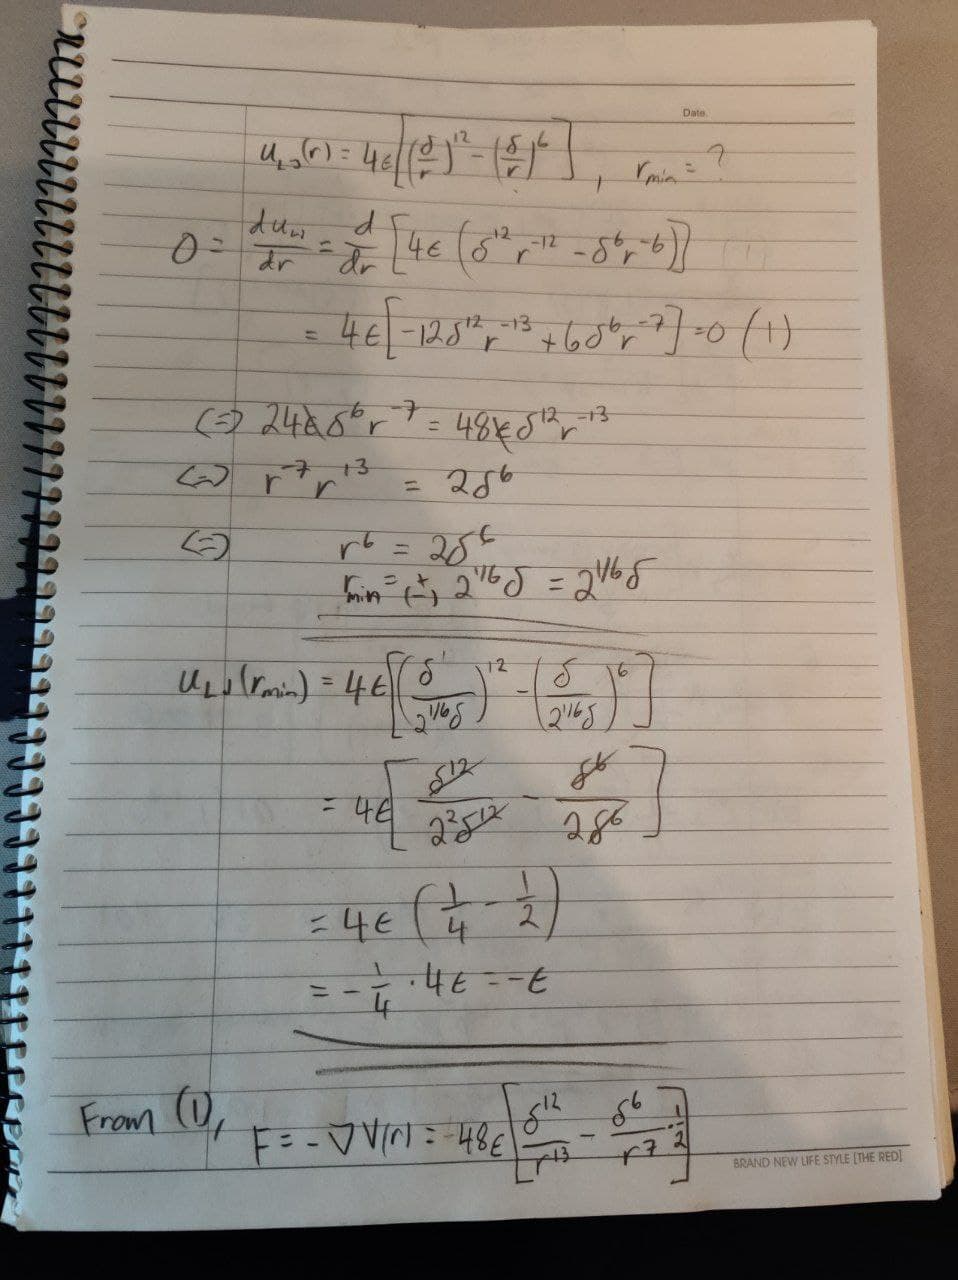 Date.
u_LJ(r) = 4ϵ[(δ/r)^12 - (δ/r)^6], r_min = ?
0 = du_LJ/dr = d/dr [4ϵ (δ^12 r^-12 - δ^6 r^-6)]
= 4ϵ[-12δ^12 r^-13 + 6δ^6 r^-7] = 0 (1)
<=> 24ϵδ^6 r^-7 = 48ϵδ^12 r^-13
<=> r^-7 r^13 = 2δ^6
<=> r^6 = 2δ^6
r_min = (±) 2^1/6 δ = 2^1/6 δ
u_LJ(r_min) = 4ϵ[(δ/2^1/6 δ)^12 - (δ/2^1/6 δ)^6]
= 4ϵ[δ^12/2^2 δ^12 - δ^6/2δ^6]
= 4ϵ (1/4 - 1/2)
= -1/4 · 4ϵ = -ϵ
From (1),
F = -∇V(r) = 48ϵ[δ^12/r^13 - δ^6/r^7 · 1/2]
BRAND NEW LIFE STYLE [THE RED]